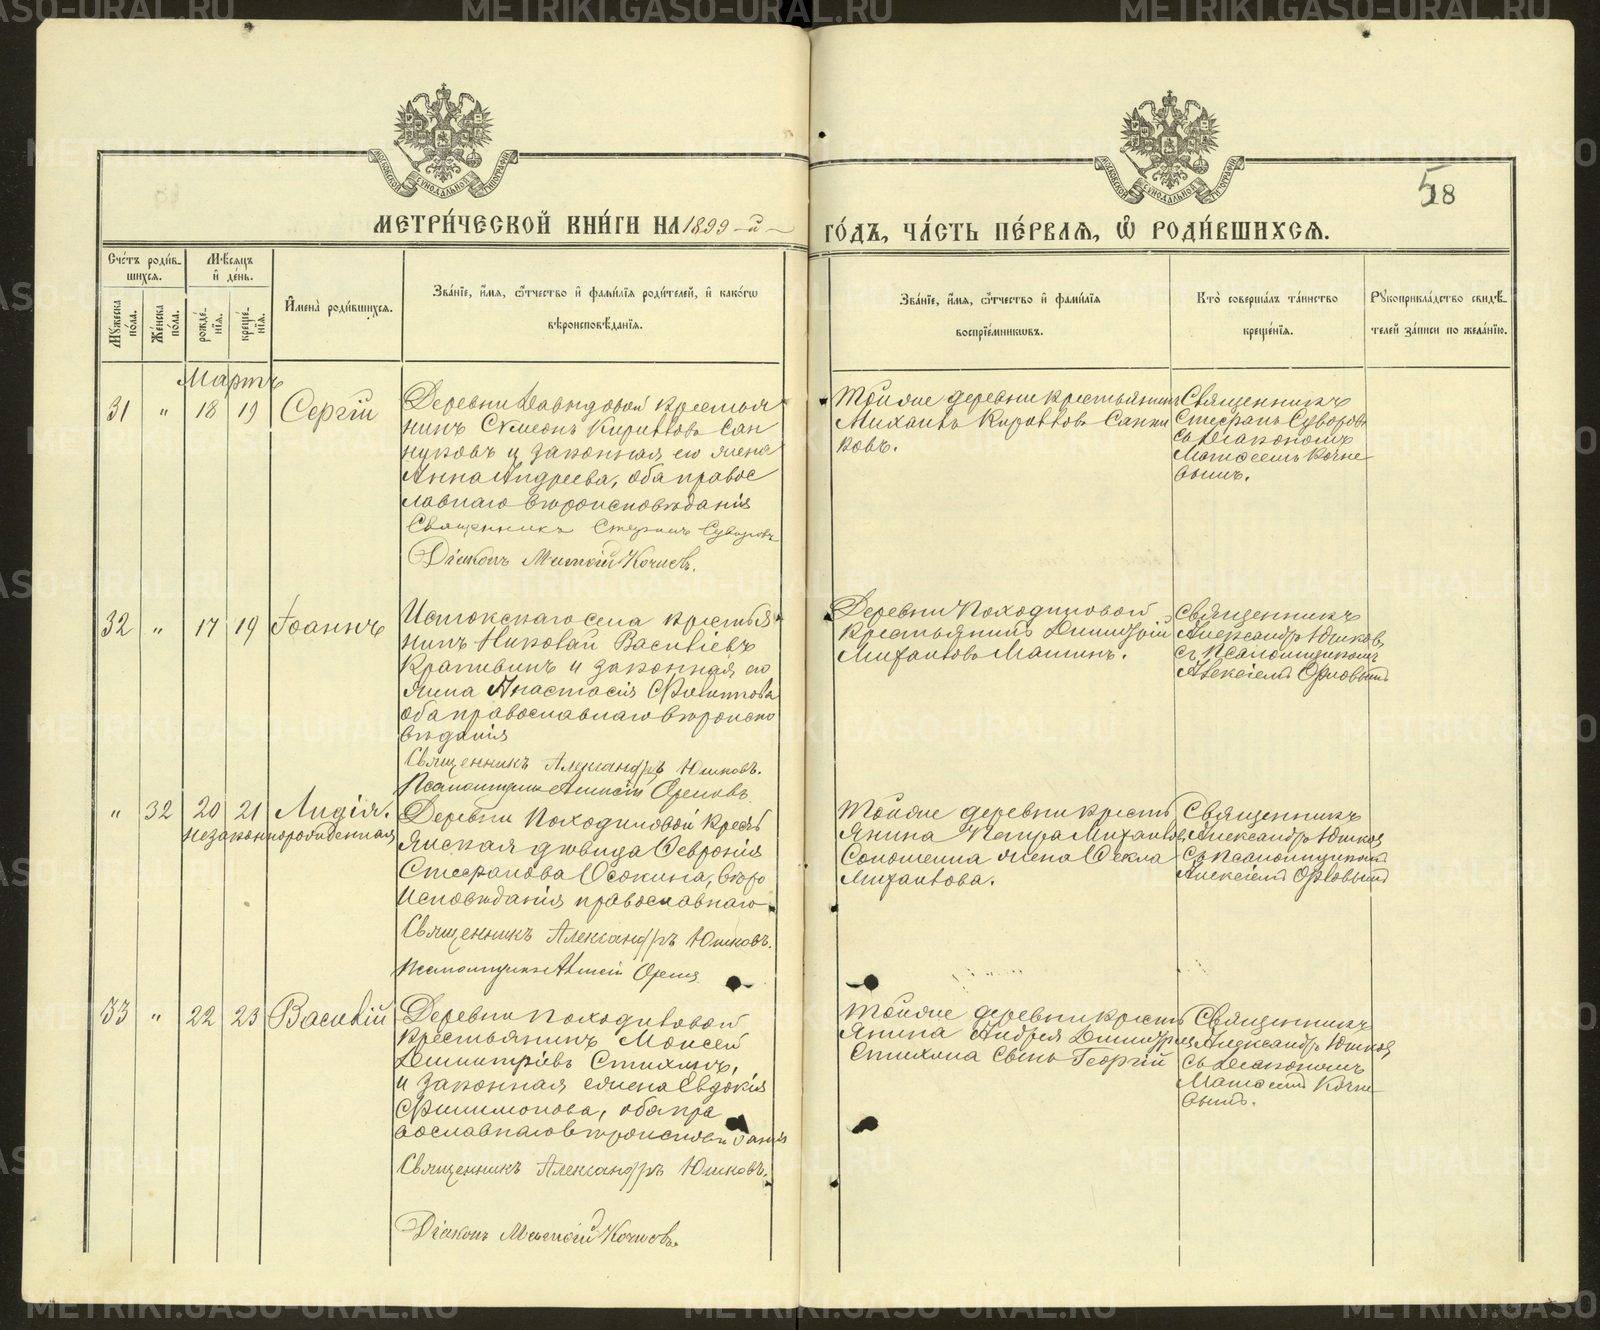 МОСКОВСКОЙ СУНОДАЛЬНОЙ ТИПОГРАФІИ
МОСКОВСКОЙ СУНОДАЛЬНОЙ ТИПОГРАФІИ
18
МЕТРИ́ЧЕСКОЙ КНИ́ГИ НА 1899-й
ГО́ДЪ, ЧА́СТЬ ПЕ́РВАЯ, Ѽ РОДИ́ВШИХСЯ.
Сче́тъ роди́в-
шихся.
Мѣ́сяцъ
и҆ де́нь.
Мꙋ́жеска
по́ла.
Же́нска
по́ла.
рожде́-
нїя.
креще́-
нїя.
И҆мена̀ роди́вшихся.
Зва́нїе, и҆́мя, ѻ҆́тчество и҆ фами́лїя роди́телей, и҆ како́гѡ
вѣроисповѣ́данїя.
Зва́нїе, и҆́мя, ѻ҆́тчество и҆ фами́лїя
воспрїе́мниковъ.
Кто̀ соверша́лъ та́инство
креще́нїя.
Рꙋкоприкла́дство свидѣ́-
телей за́писи по жела́нїю.
Мартъ
31 " 18 19 Сергій
Деревни Давыдовой крестья
нинъ Сѵмеонъ Кирилловъ Сан
никовъ и законная его жена
Анна Андреева, оба правос
лавнаго вѣроисповѣданія
Священникъ Стефанъ Суворовъ
Діаконъ Матѳій Кочневъ.
Тойже деревни крестьянинъ
Михаилъ Кирилловъ Санни
ковъ.
Священникъ
Стефанъ Суворовъ
съ Діакономъ
Матѳеемъ Кочне
вымъ.
32 " 17 19 Іоаннъ
Истокскаго села крестья
нинъ Николай Васильевъ
Крапивинъ и законная его
жена Анастасія Филиппова
оба православнаго вѣроиспо
вѣданія
Священникъ Александръ Юшковъ.
Псаломщикъ Алексій Орловъ
Деревни Походиловой
крестьянинъ Димитрій
Михаиловъ Машинъ.
Священникъ
Александръ Юшковъ
съ Псаломщикомъ
Алексіемъ Орловымъ
" 32 20 21 Лидія.
незаконнорожденная
Деревни Походиловой кресть
янская дѣвица Февронія
Стефанова Осокина, вѣро
исповѣданія православнаго
Священникъ Александръ Юшковъ.
Псаломщикъ Алексій Орловъ
Тойже деревни кресть
янина Петра Михаилова
жена Ѳекла
Михаилова.
Священникъ
Александръ Юшковъ
съ псаломщикомъ
Алексіемъ Орловымъ
33 " 22 23 Василій
Деревни Походиловой
крестьянинъ Моисей
Димитріевъ Стихинъ,
и законная жена Евдокія
Филимонова, оба пра
вославнаго вѣроисповѣданія
Священникъ Александръ Юшковъ.
Діаконъ Матѳій Кочневъ.
Тойже деревни кресть
янина Андрея Димитріева
Стихина сынъ Георгій
Священникъ
Александръ Юшковъ
съ Діакономъ
Матѳеемъ Кочне
вымъ.
METRIKI.GASO-URAL.RU